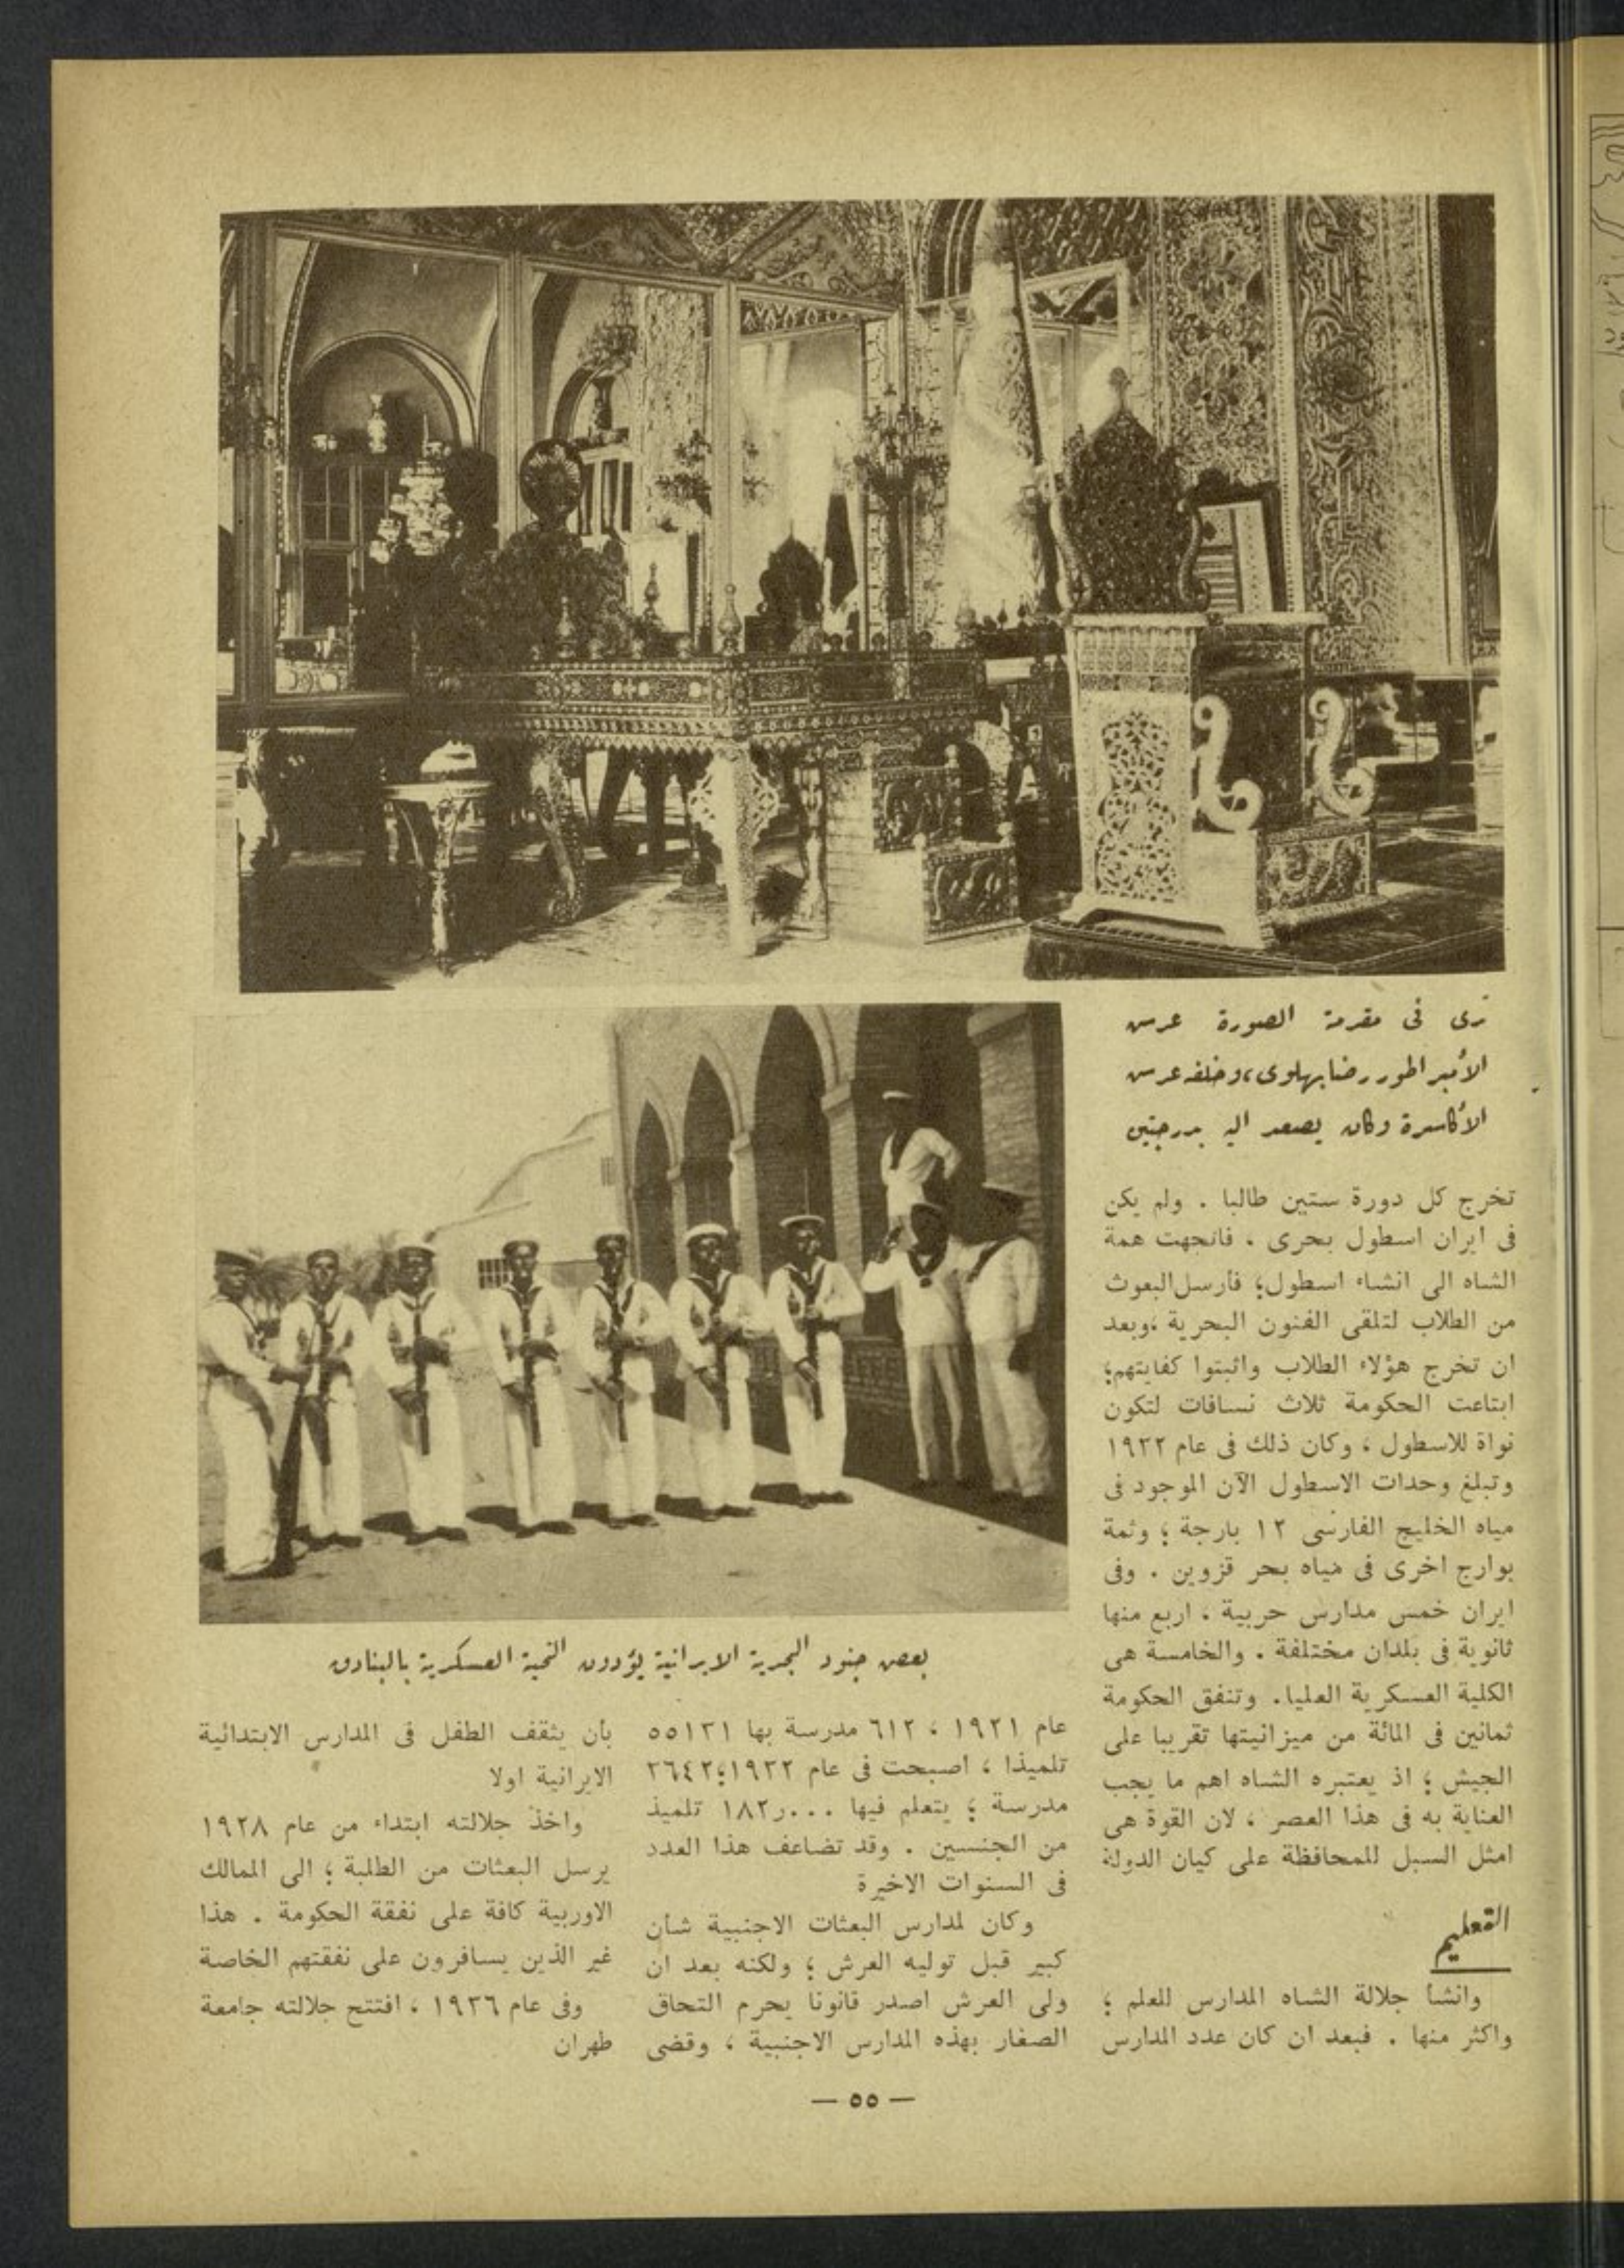 ترى فى مقدمة الصورة عرش
الأمبراطور رضا بهلوى، وخلفه عرش
الأكاسرة وكان يصعد اليه بدرجتين
تخرج كل دورة ستين طالبا . ولم يكن
فى ايران اسطول بحرى ، فاتجهت همة
الشاه الى انشاء اسطول؛ فأرسل البعوث
من الطلاب لتلقى الفنون البحرية ،وبعد
ان تخرج هؤلاء الطلاب واثبتوا كفايتهم؛
ابتاعت الحكومة ثلاث نسافات لتكون
نواة للاسطول ، وكان ذلك فى عام ١٩٣٢
وتبلغ وحدات الاسطول الآن الموجود فى
مياه الخليج الفارسى ١٢ بارجة ؛ وثمة
بوارج اخرى فى مياه بحر قزوين . وفى
ايران خمس مدارس حربية ، اربع منها
ثانوية فى بلدان مختلفة . والخامسة هى
الكلية العسكرية العليا. وتنفق الحكومة
ثمانين فى المائة من ميزانيتها تقريبا على
الجيش ؛ اذ يعتبره الشاه اهم ما يجب
العناية به فى هذا العصر ، لان القوة هى
امثل السبل للمحافظة على كيان الدولة
التعليم
وانشأ جلالة الشاه المدارس للعلم ؛
واكثر منها . فبعد ان كان عدد المدارس
بعض جنود البحرية الايرانية يؤدون التحية العسكرية بالبنادق
عام ١٩٢١ ، ٦١٢ مدرسة بها ٥٥١٣١
تلميذا ، اصبحت فى عام ١٩٣٢؛ ٢٦٤٢
مدرسة ؛ يتعلم فيها ١٨٢٫٠٠٠ تلميذ
من الجنسين . وقد تضاعف هذا العدد
فى السنوات الاخيرة
وكان لمدارس البعثات الاجنبية شأن
كبير قبل توليه العرش ؛ ولكنه بعد ان
ولى العرش اصدر قانونا يحرم التحاق
الصغار بهذه المدارس الاجنبية ، وقضى
بأن يثقف الطفل فى المدارس الابتدائية
الايرانية اولا
واخذ جلالته ابتداء من عام ١٩٢٨
يرسل البعثات من الطلبة ؛ الى الممالك
الاوربية كافة على نفقة الحكومة . هذا
غير الذين يسافرون على نفقتهم الخاصة
وفى عام ١٩٣٦ ، افتتح جلالته جامعة
طهران
— ٥٥ —